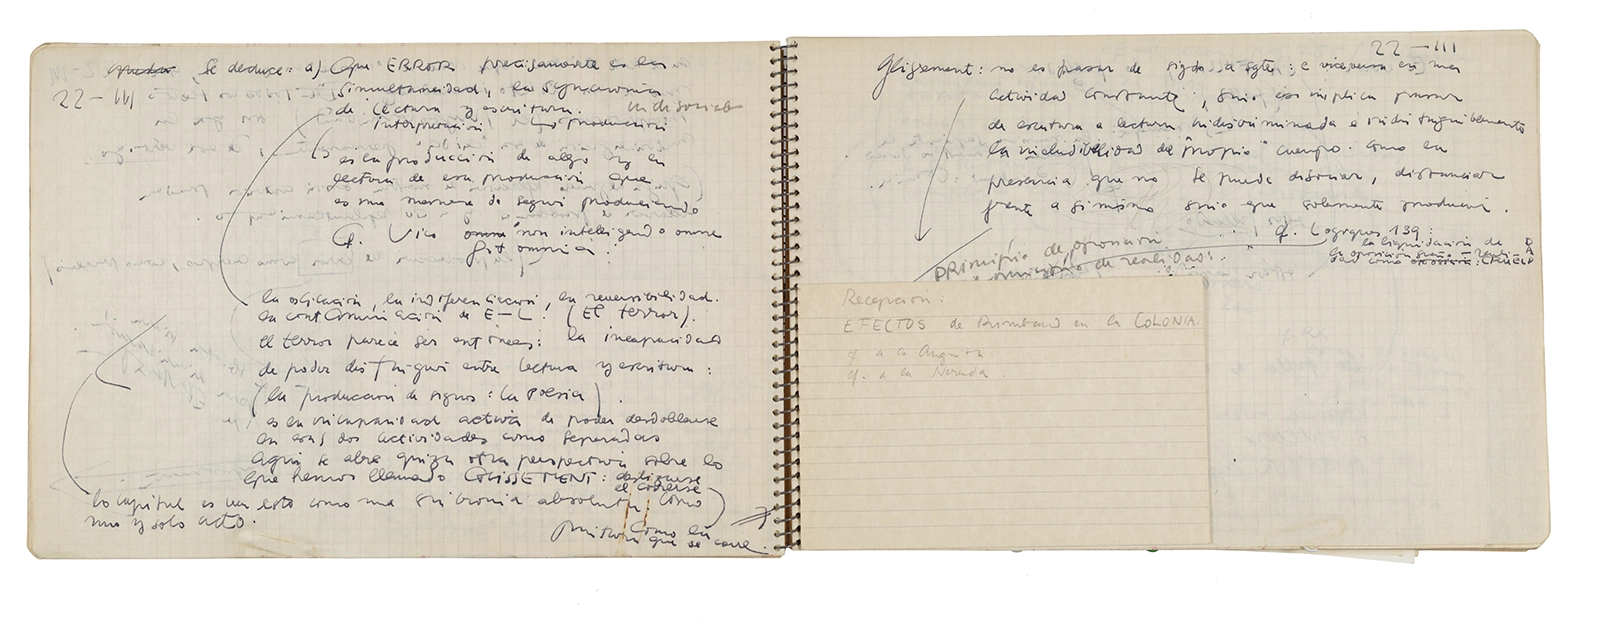 Se deduce: a) Que ERROR precisamente es la
22-III
simultaneidad, la synchronia
de lectura y escritura. indisociab
interpretación producción
es la producción de algo y la
lectura de esa producción que
es una manera de seguir produciendo
Cf. Vico non intelligendo omne
fit omnia:
la oscilación, la indiferenciación, la reversibilidad.
la contaminación de E-L. (El terror).
el terror parece ser entonces: la incapacidad
de poder distinguir entre lectura y escritura:
(la producción de signos: la poesía)
es la incapacidad activa de poder desdoblarse
en esas dos actividades como separadas
Aquí se abre quizá otra perspectiva sobre lo
que hemos llamado GLISSEMENT: deslizarse
el correrse
lo capital es en esto como una sincronía absoluta, como
uno y solo acto.
como la
pintura que se corre.
22-III
Glissement: no es pasar de sigdo a sgte; e viceversa en una
actividad constante, sino eso implica pasar
de escritura a lectura indiscriminada e indistinguiblemente
la ineludibilidad del "propio" cuerpo. como la
presencia que no se puede disociar, distanciar
frente a sí mismo sino que solamente producir.
Cf. Logogrus 139:
la liquidación de
la oposición
Principio de oposición
principio de realidad:
Recepción:
EFECTOS de Rimbaud en la COLONIA.
cf a la Anguita
cf. a la Neruda.